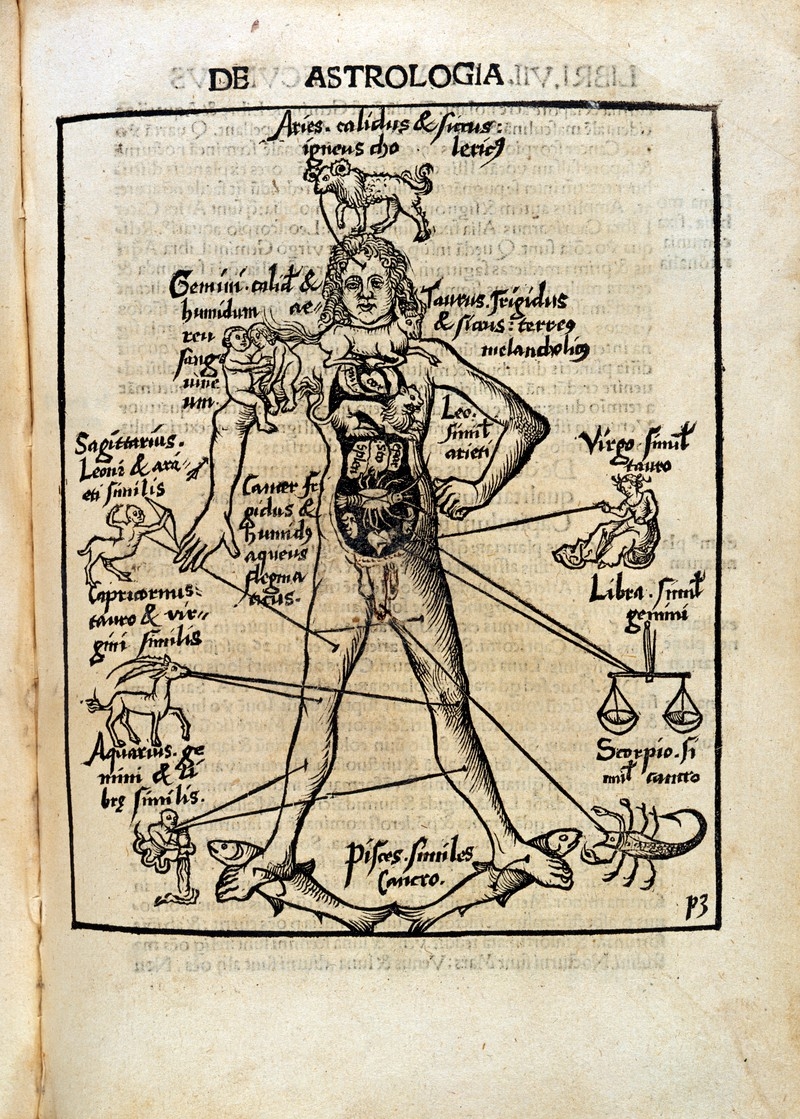 DE ASTROLOGIA
Aries. calidus & siccus:
igneus cho lericꝰ
Gemini. calid &
humidum ae-
reu
sang
uine
um.
Taurus. frigidus
& sicus: terreꝰ
melancholicꝰ
Leo.
simil
arieti
Sagittarius.
Leoni & ari-
eti similis
Virgo. simil
tauro
Cancer fri
gidus &
humidꝰ
aqueus
flegma
ticus.
Capricornus:
tauro & vir-
gini similis
Libra. simil
gemini
Aquarius. ge
mini & li
brę similis.
Scorpio. si
mil cancro
Pisces. similes
Cancro.
p3